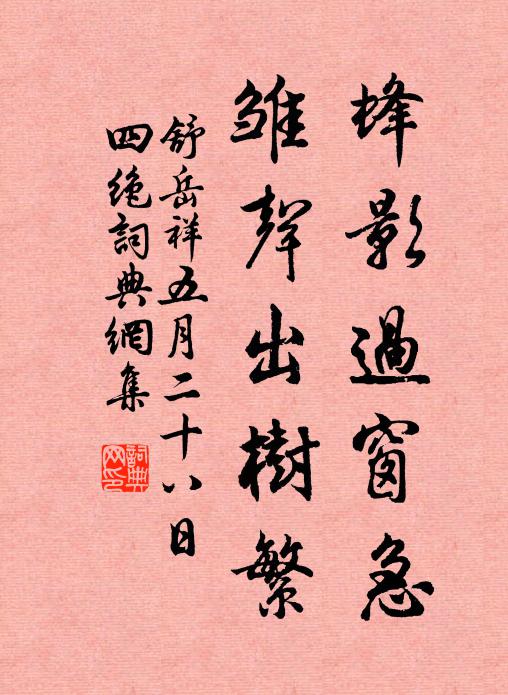 蜂影過窗急
雏聲出樹繁
舒岳祥五月二十八日
四絶詞典網集
詞典
网印